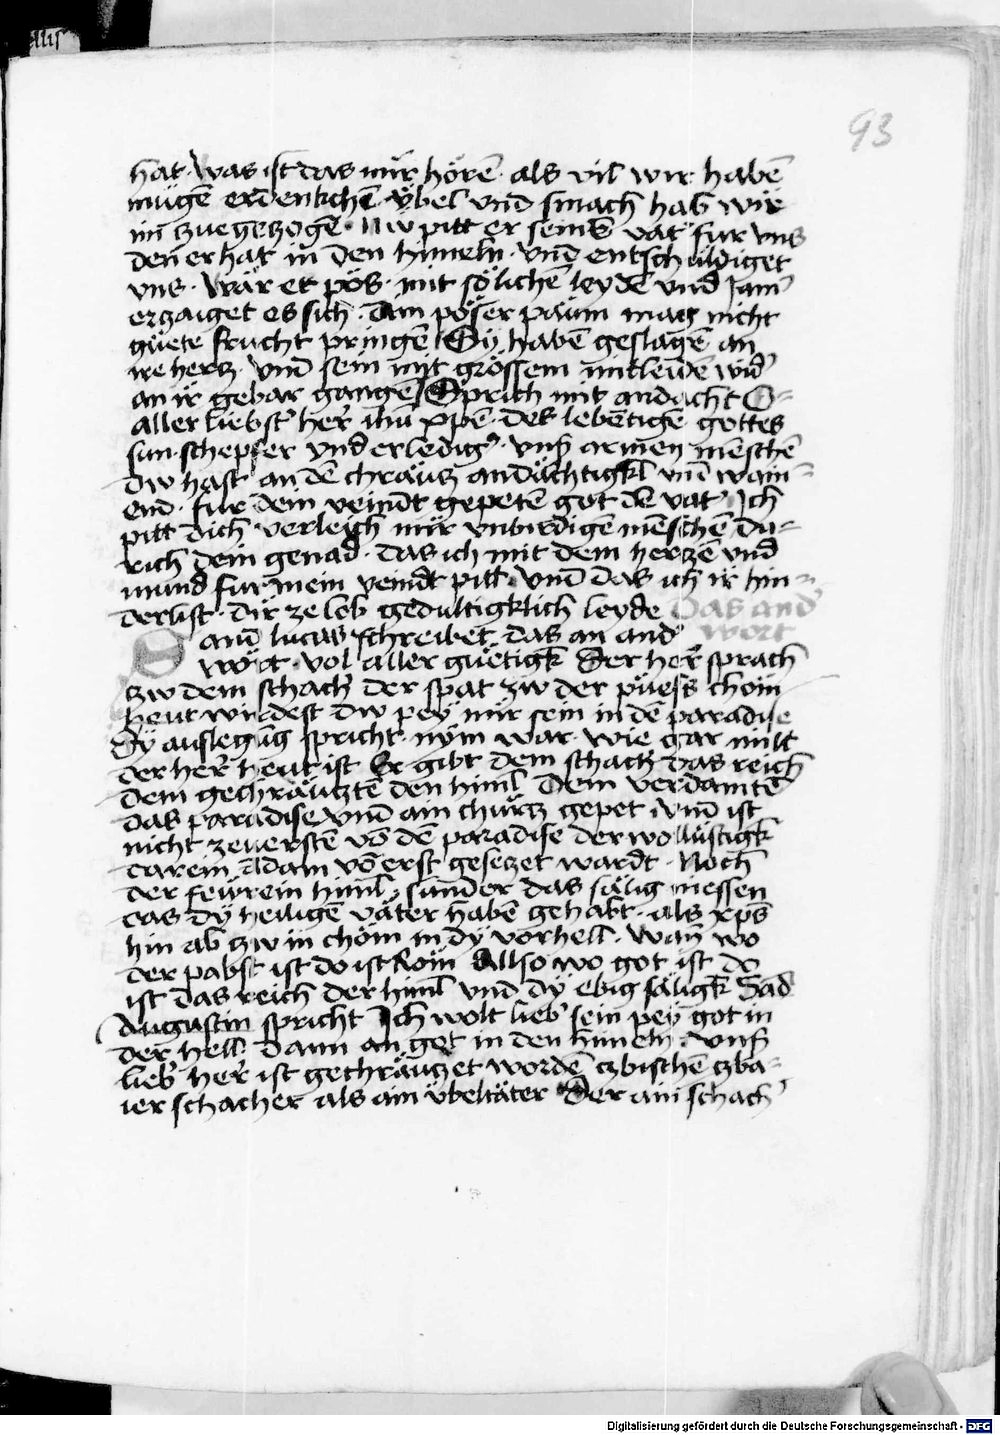 93
hat · Was ist das mir hörē · als vil wir habē
mügē erdenkchē · ÿbel vnd smach hab wir
im zuegezogē · Nw pitt er seinē vat' fur vns
den er hat in den himeln · vnd entschuldiget
vns · Wär er pös · mit sölichē leydē vnd Jam'
erzaiget es sich · Ain pöser paum mag nicht
guete frucht pringē Dy habē geslagē an
ire hercz · vnd sein mit grössem mitleidē wid'
an ir gebar gangē Sprich mit andacht O
aller liebst' her' ihū xpē · des lebētigē gottes
sun · schepfer vnd erledig' · vns' armen mēschē
Dw hast an dē chräucz andächtigkl vnd wain-
end · fur dein veindt gepetē got dē vat' Ich
pitt dich · verleich mir vnbirdigē mēschē du-
rich dein genad · das ich mit dem herczē vnd
mund fur mein veindt pitt · vnd das ich ir hin-
derlist · dir ze lob gedultigklich leyde Das and'
Sand lucas schreibet das an and' wort
wort · vol aller guetigk' Der her' sprach
zw dem schach' der spat zw der puess chom
heut wirdest dw pey mir sein in dē paradise
Dy auslegūg spricht · nym war · wie gar milt
der her' heut ist Er gibt dem schach' das reich
dem gechräuczte den himl Dem verdamtē
das paradise vnd ain churcz gepet · vnd ist
nicht zeuerstē vō dē paradise der wollüstigk'
darein Adam vō erst geseczet wardt · Noch
der fewrein himl · sunder das sälig niessen
das dy heiligē väter habē gehabt · als xps
hin ab zw in chom in dy vorhell · Wan wo
der pabst ist do ist Rom Allso wo got ist do
ist das reich der himl vnd dy ebig säligk' Sād
Augustin spricht Ich wolt lieb' sein pey got in
der hell · dann an got in den himeln · vns'
lieb' her' ist gechräuczet wordē czbischē czba-
ier schacher als ain übeltäter Der ain schach'
Digitalisierung gefördert durch die Deutsche Forschungsgemeinschaft - DFG